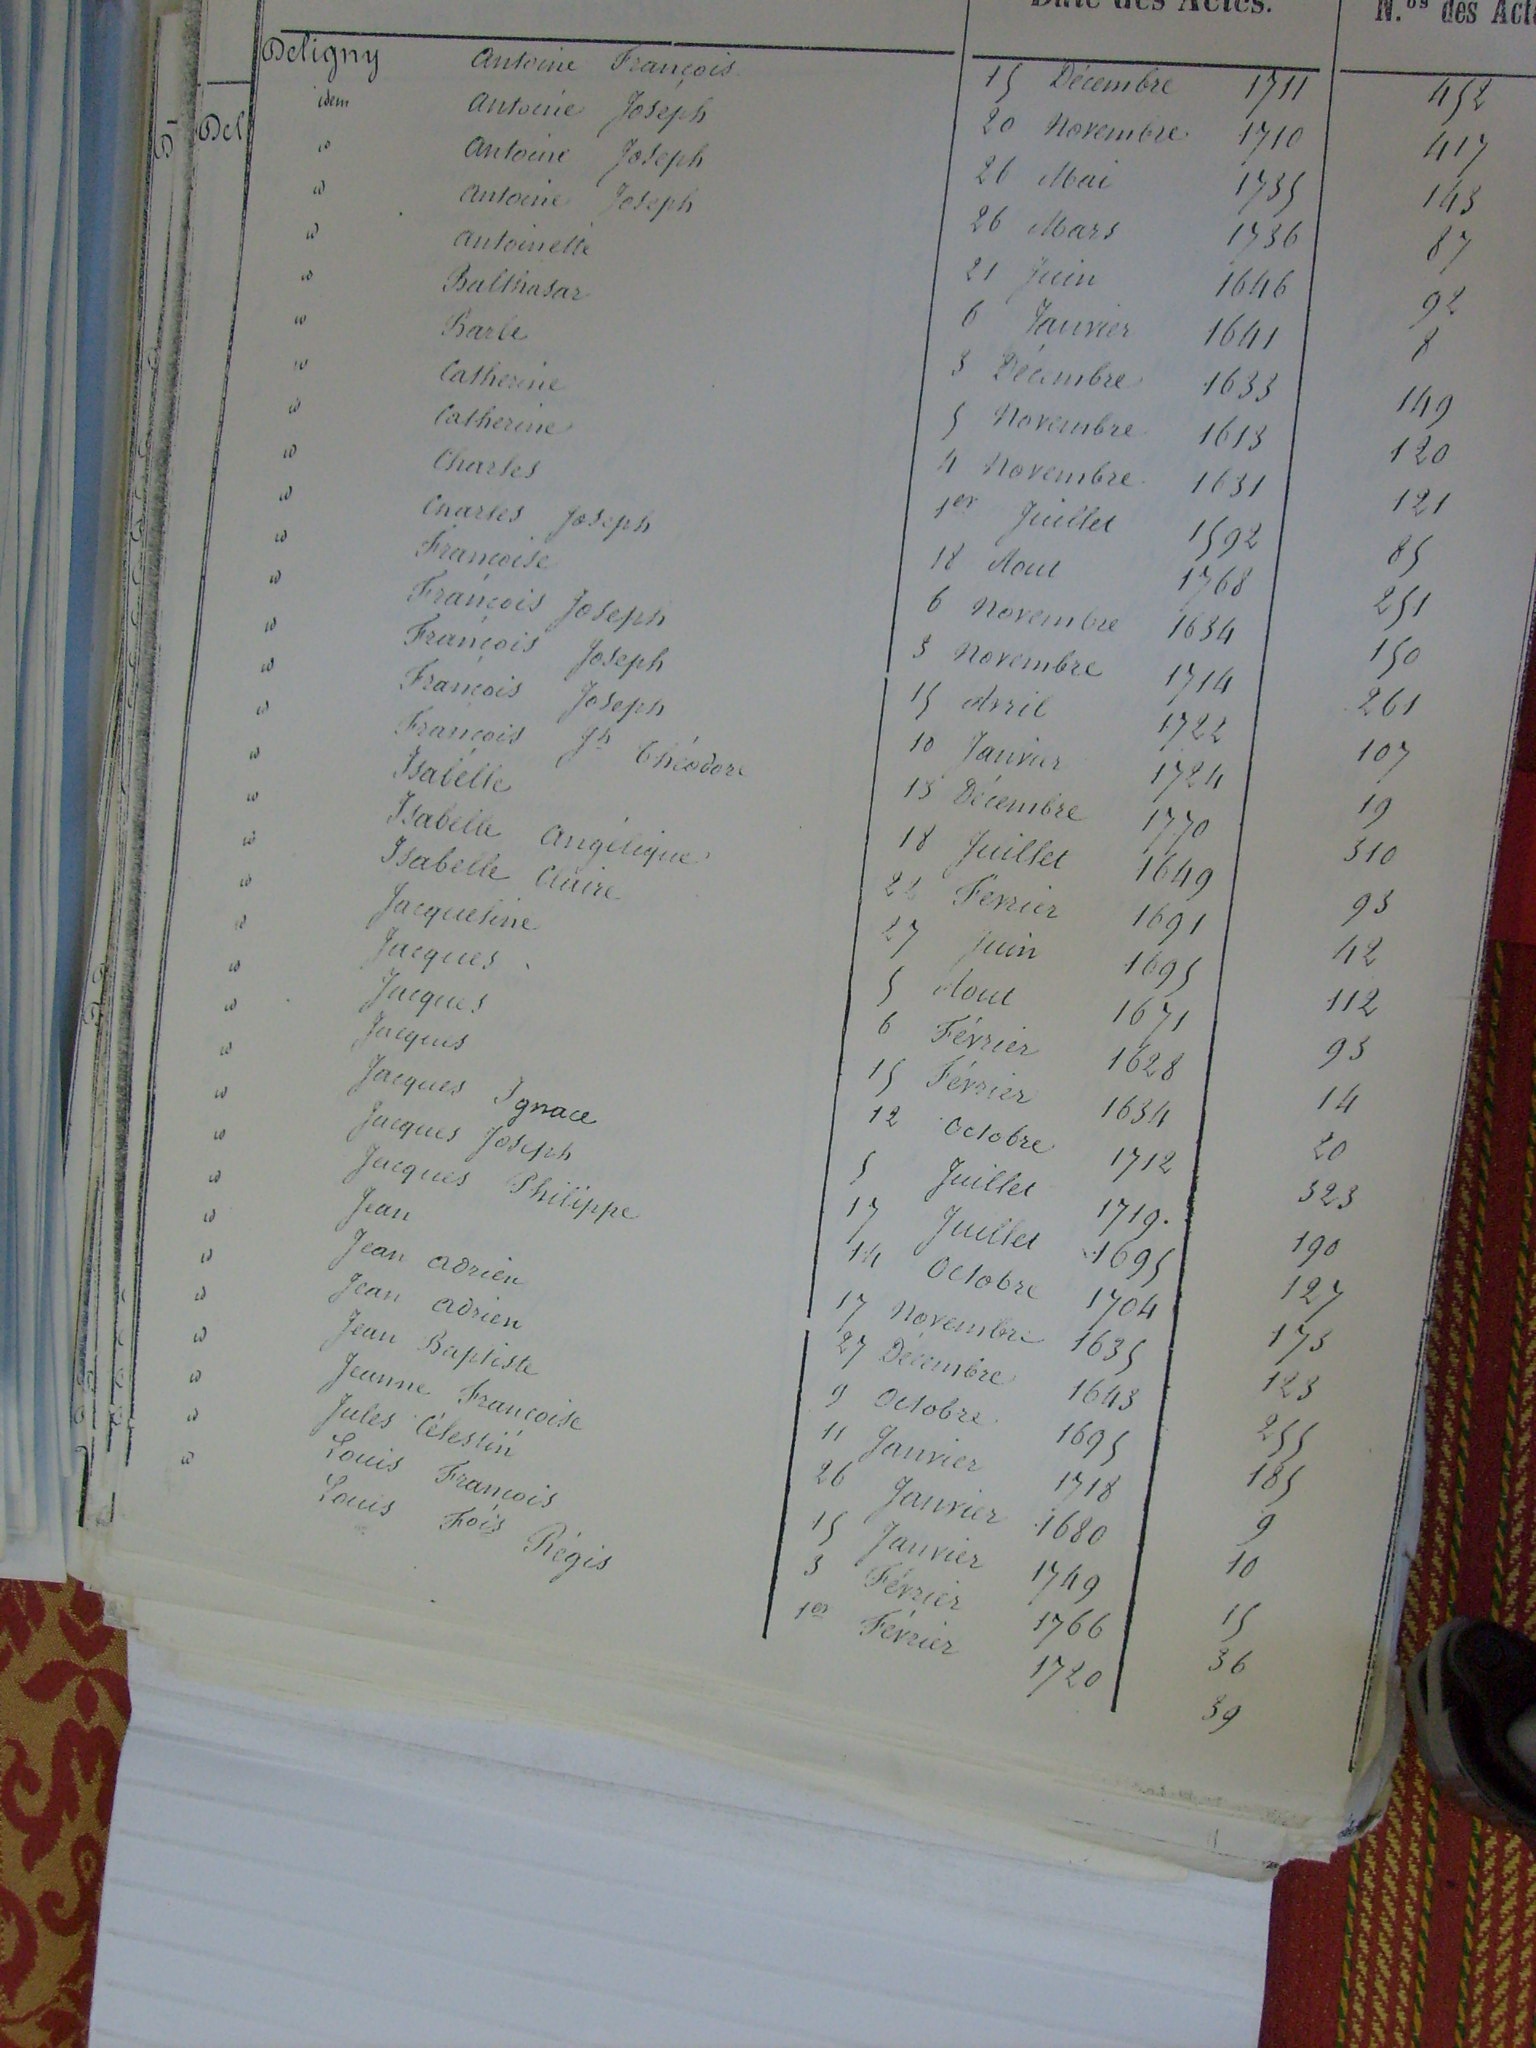 Date des Actes. N.os des Act
Deligny Antoine François 15 Décembre 1711 452
idem Antoine Joseph 20 Novembre 1710 417
Del
id Antoine Joseph 26 Mai 1735 143
id Antoine Joseph 26 Mars 1736 87
id Antoinette 21 Juin 1646 92
id Balthasar 6 Janvier 1641 8
id Barbe 3 Décembre 1633 149
id Catherine 5 Novembre 1613 120
id Catherine 4 Novembre 1631 121
id Charles 1er Juillet 1592 85
id Charles Joseph 18 Aout 1768 251
id Françoise 6 Novembre 1634 150
id François Joseph 3 Novembre 1714 261
id François Joseph 15 Avril 1722 107
id François Joseph 10 Janvier 1724 19
id François Jh Théodore 13 Décembre 1770 310
id Isabelle 18 Juillet 1649 93
id Isabelle Angélique 22 Février 1691 42
id Isabelle Claire 27 Juin 1695 112
id Jacqueline 5 Aout 1671 93
id Jacques 6 Février 1628 14
id Jacques 15 Février 1634 20
id Jacques 12 Octobre 1712 323
id Jacques Ignace 5 Juillet 1719. 190
id Jacques Joseph 17 Juillet 1695 127
id Jacques Philippe 14 Octobre 1704 173
id Jean 17 Novembre 1635 123
id Jean Adrien 27 Décembre 1643 255
id Jean Adrien 9 Octobre 1695 185
id Jean Baptiste 11 Janvier 1718 9
id Jeanne Françoise 26 Janvier 1680 10
id Jules Célestin 15 Janvier 1749 15
id Louis François 3 Février 1766 36
id Louis Fois Régis 1er Février 1720 39